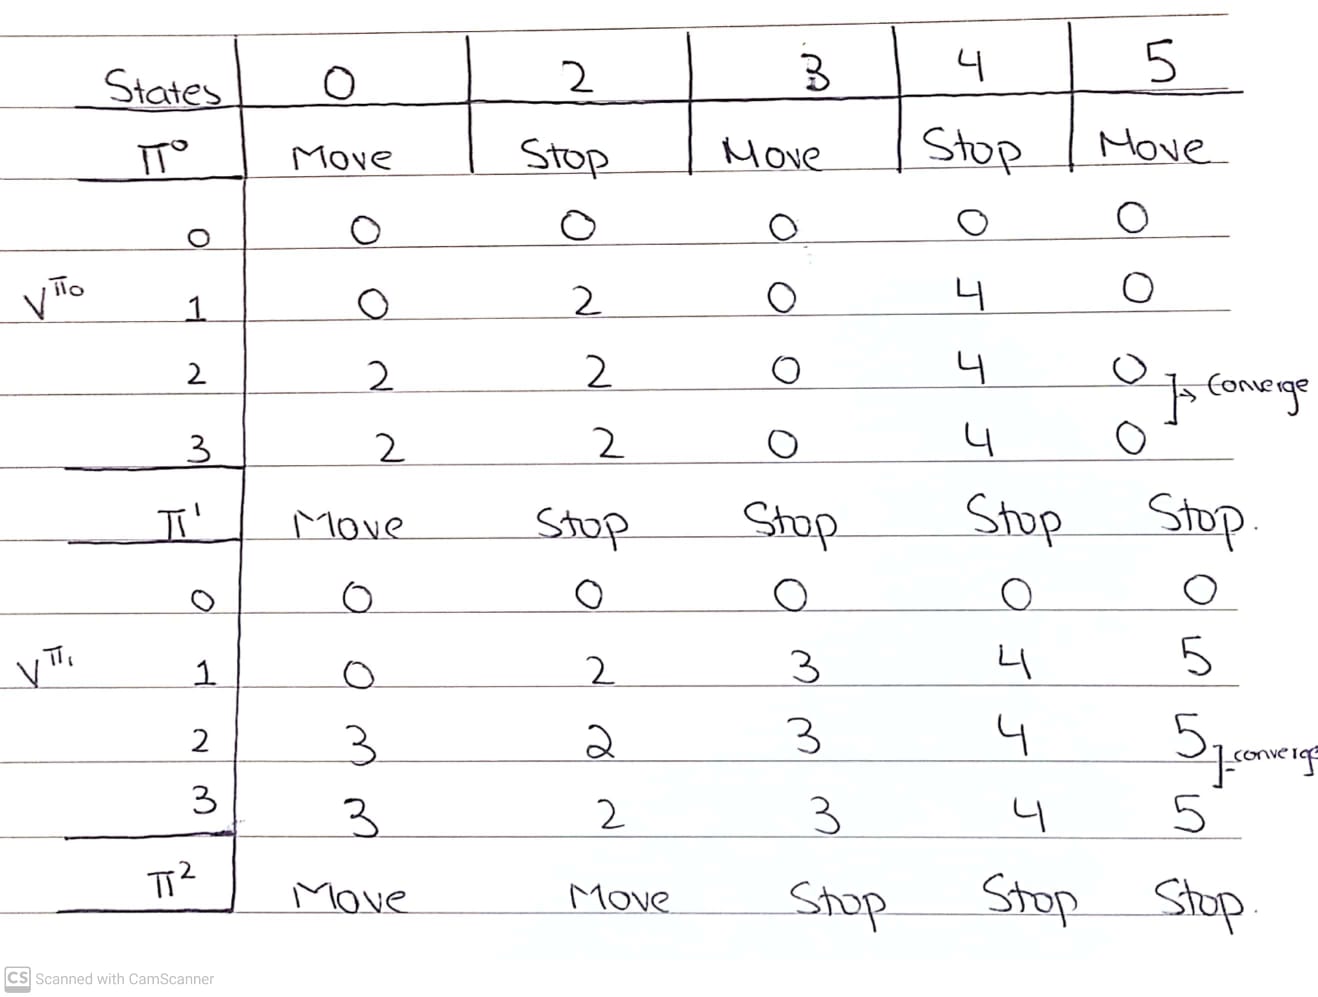 States 0 2 3 4 5
π⁰ Move Stop Move Stop Move
0 0 0 0 0 0
V^π₀ 1 0 2 0 4 0
2 2 2 0 4 0 ]→ Converge
3 2 2 0 4 0
π¹ Move Stop Stop Stop Stop.
0 0 0 0 0 0
V^π₁ 1 0 2 3 4 5
2 3 2 3 4 5 ] converge
3 3 2 3 4 5
π² Move Move Stop Stop Stop.
CS Scanned with CamScanner